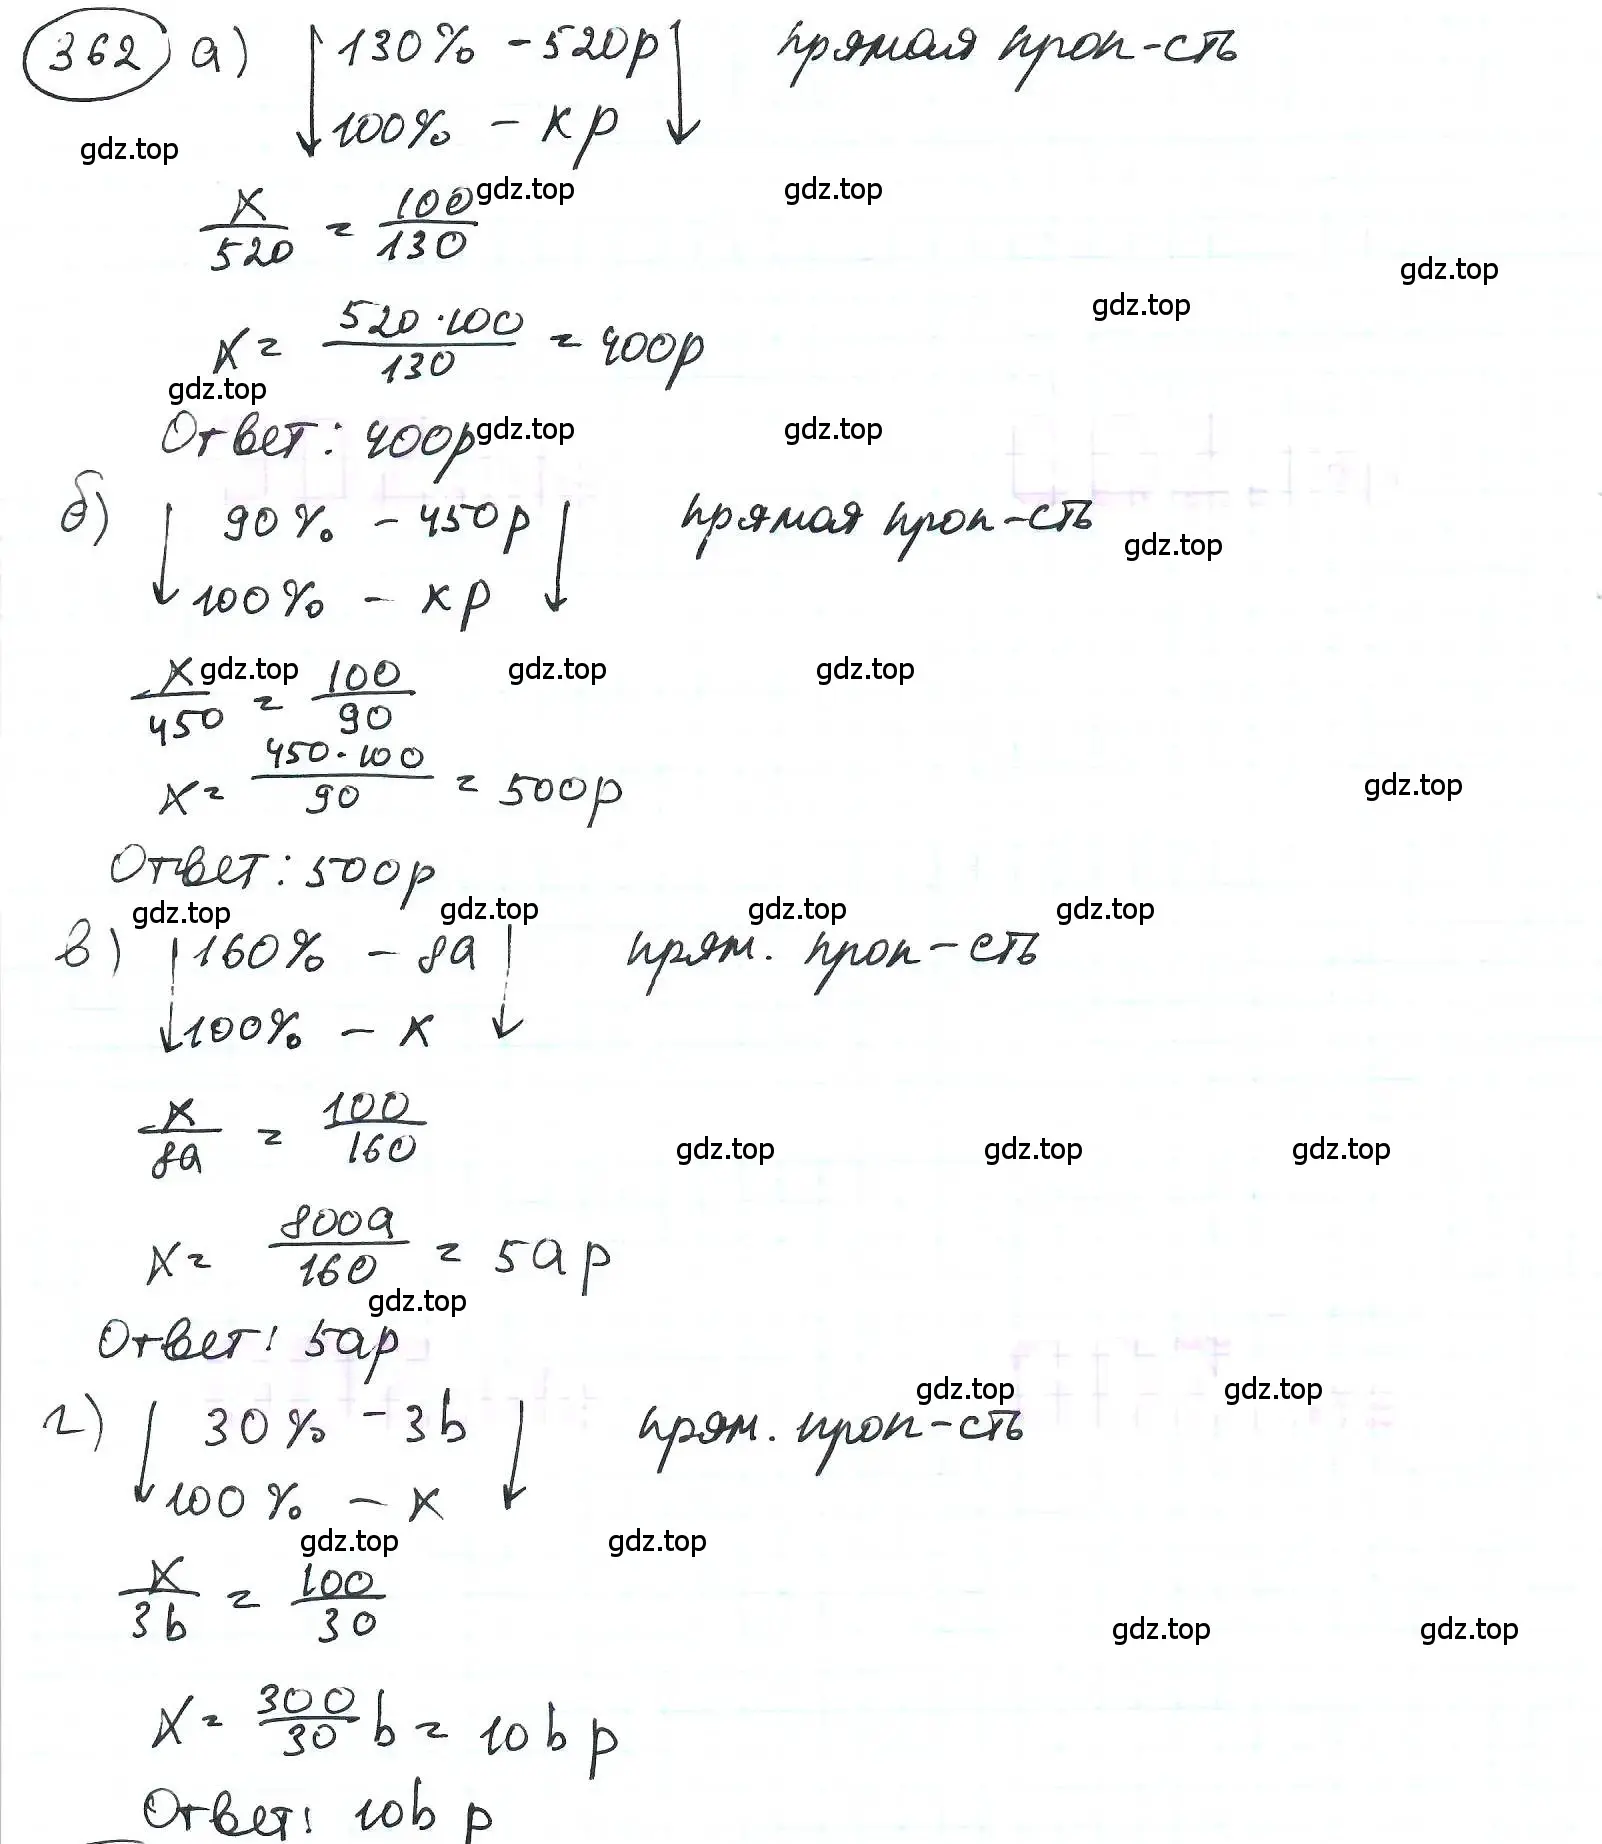 362 а) 130% - 520р прямая проп-сть
100% - x р
gdz.top
x/520 = 100/130 gdz.top gdz.top
gdz.top
gdz.top
x = 520·100/130 = 400р
gdz.top
Ответ: 400р gdz.top gdz.top
б) 90% - 450р прямая проп-сть
gdz.top
100% - x р
gdz.top gdz.top gdz.top
x/450 = 100/90
x = 450·100/90 = 500р gdz.top
Ответ: 500р
gdz.top gdz.top gdz.top gdz.top
в) 160% - 8а прям. проп-сть
100% - x
x/8а = 100/160 gdz.top gdz.top gdz.top
x = 800а/160 = 5а р
gdz.top
Ответ: 5ар
gdz.top gdz.top
г) 30% - 3b прям. проп-сть
100% - x
gdz.top gdz.top
x/3b = 100/30
gdz.top gdz.top
x = 300/30 b = 10b р
Ответ: 10b р